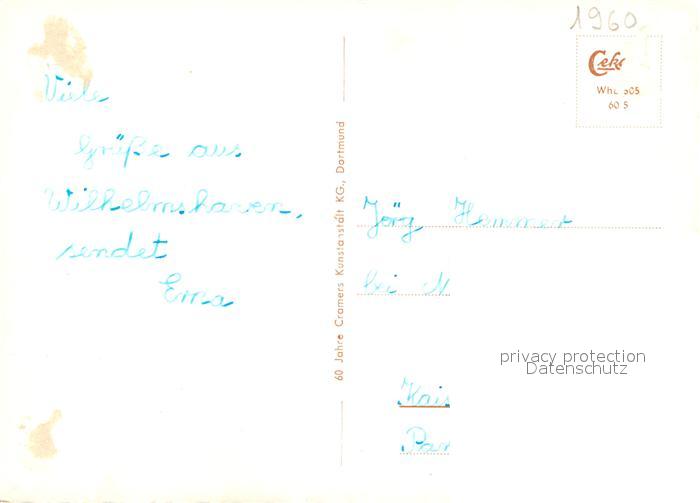 1960
Viele
Grüße aus
Wilhelmshaven,
sendet
Erna
60 Jahre Cramers Kunstanstalt KG., Dortmund
Whv 505
60 5
Jörg Hemmer
bei M
privacy protection
Datenschutz
Kais
Par